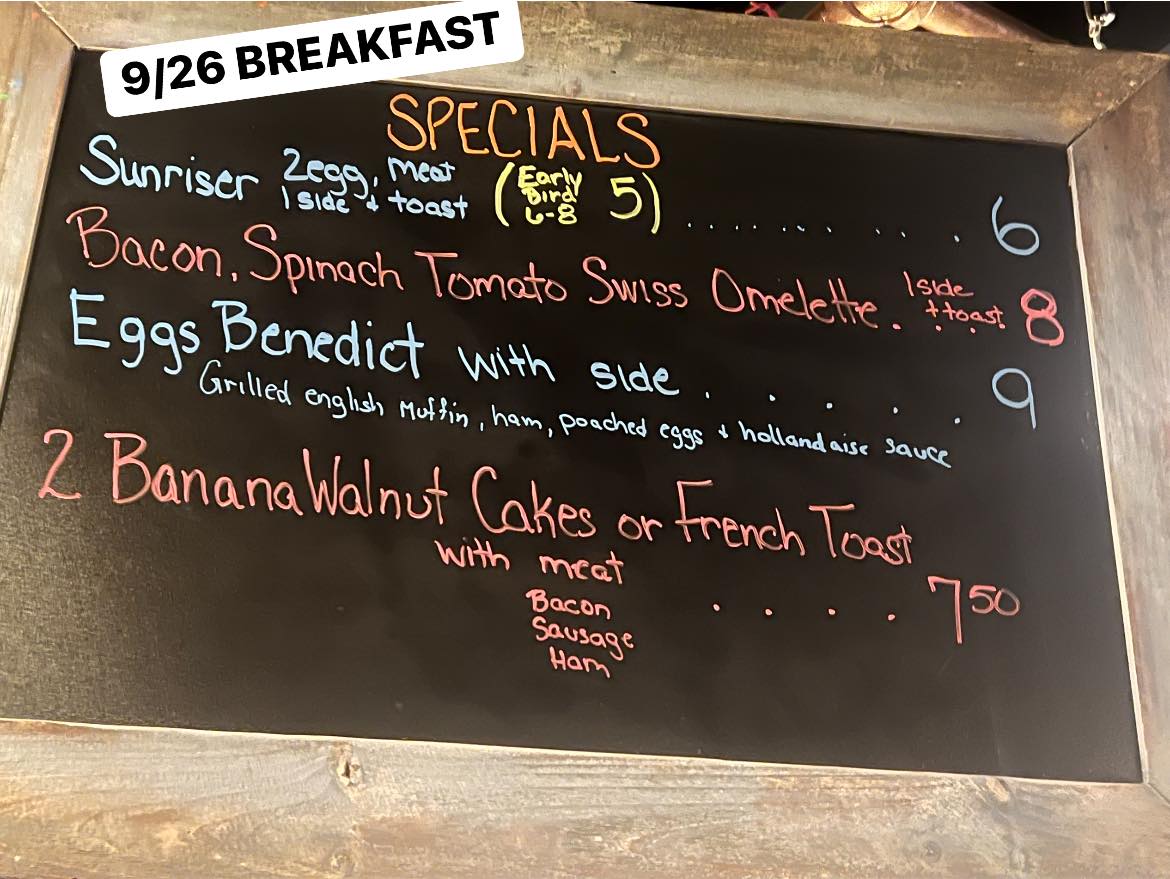 9/26 BREAKFAST
SPECIALS
Sunriser 2egg, meat 1 side + toast (Early Bird 6-8 5) . . . . . . . . . 6
Bacon, Spinach Tomato Swiss Omelette . 1 side + toast . . . 8
Eggs Benedict with side . . . . . 9
Grilled english Muffin, ham, poached eggs + hollandaise sauce
2 Banana Walnut Cakes or French Toast
with meat
Bacon . . . . 7 50
Sausage
Ham